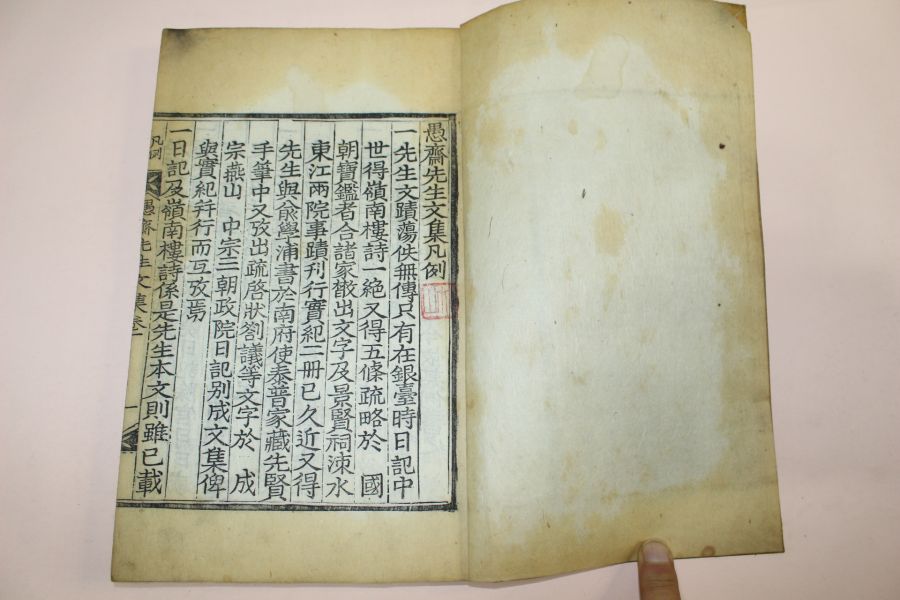 愚齋先生文集凡例
一先生文蹟蕩佚無傳只有在銀臺時日記中
世得嶺南樓詩一絕又得五條疏略於 國
朝寶鑑者合諸家散出文字及景賢祠涑水
東江兩院事蹟刊行實紀二冊已久近又得
先生與兪學浦書於南府使泰普家藏先賢
手筆中又攷出疏啓狀劄議等文字於 成
宗燕山 中宗三朝政院日記別成文集俾
與實紀幷行而互攷焉
一日記及嶺南樓詩係是先生本文則雖已載
凡例
愚齋先生文集卷一